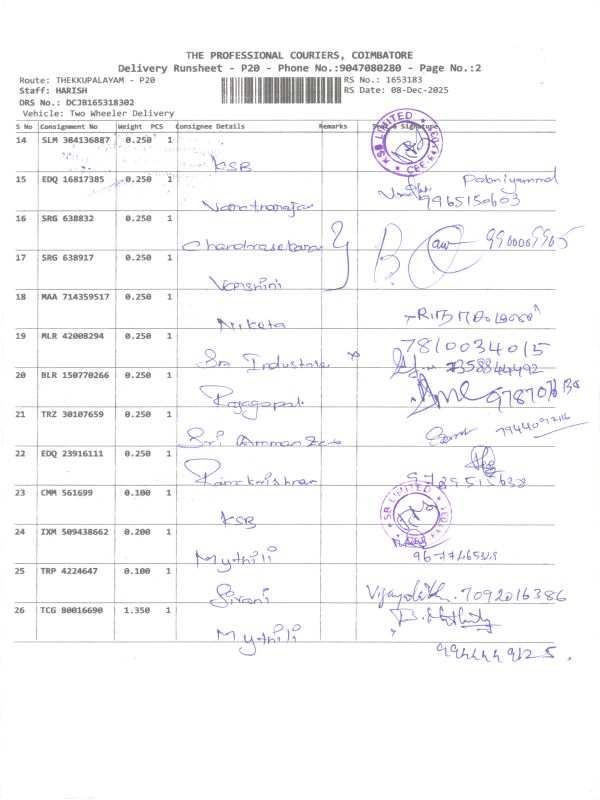 THE PROFESSIONAL COURIERS, COIMBATORE
Delivery Runsheet - P20 - Phone No.:9047080280 - Page No.:2
Route: THEKKUPALAYAM - P20 RS No.: 1653183
Staff: HARISH RS Date: 08-Dec-2025
DRS No.: DCJB165318302
Vehicle: Two Wheeler Delivery
S No Consignment No Weight PCS Consignee Details Remarks Seal & Signature
14 SLM 304136887 0.250 1 KSB KSB LIMITED
15 EDQ 16817385 0.250 1 9965150603
16 SRG 638832 0.250 1 Chandrasekaran 9900069905
17 SRG 638917 0.250 1 Varshini
18 MAA 714359517 0.250 1 Niketa
7810034015
19 MLR 42008294 0.250 1 Sri Industries 7358844492
20 BLR 150770266 0.250 1 Rajagopal
21 TRZ 30107659 0.250 1 Sri Amman
22 EDQ 23916111 0.250 1 Ramkrishnan 9789515638
23 CMM 561699 0.100 1 KSB SB LIMITED
24 IXM 509438662 0.200 1 Mythili
25 TRP 4224647 0.100 1 Sivani 7092016386
26 TCG 80016690 1.350 1 Mythili
9944449125.